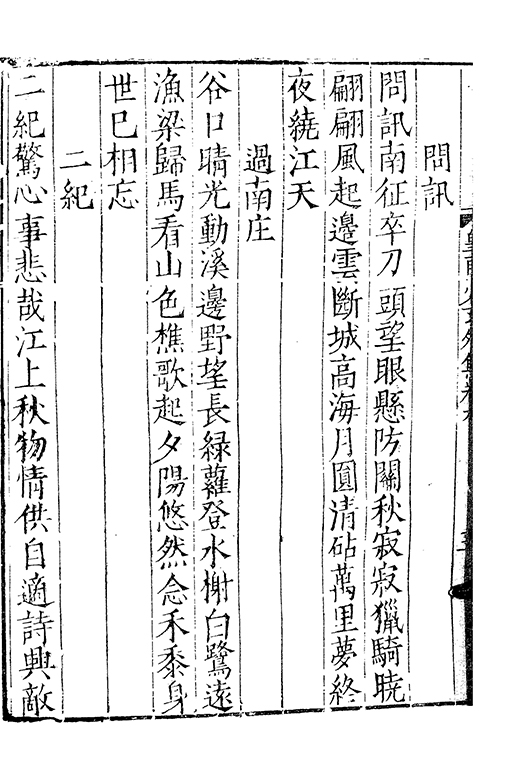 問訊
問訊南征卒刀頭望眼懸防關秋寂寂獵騎曉
翩翩風起邊雲斷城高海月圓清砧萬里夢終
夜繞江天
過南庄
谷口晴光動溪邊野望長緑蘿登水榭白鷺遠
漁梁歸馬看山色樵歌起夕陽悠然念禾黍身
世已相忘
二紀
二紀驚心事悲哉江上秋物情供自適詩興敵